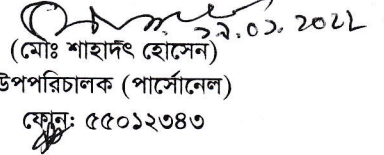 ২৯.০১.২০২২
(মোঃ শাহাদৎ হোসেন)
উপপরিচালক (পার্সোনেল)
ফোন: ৫৫০১২৩৪৩